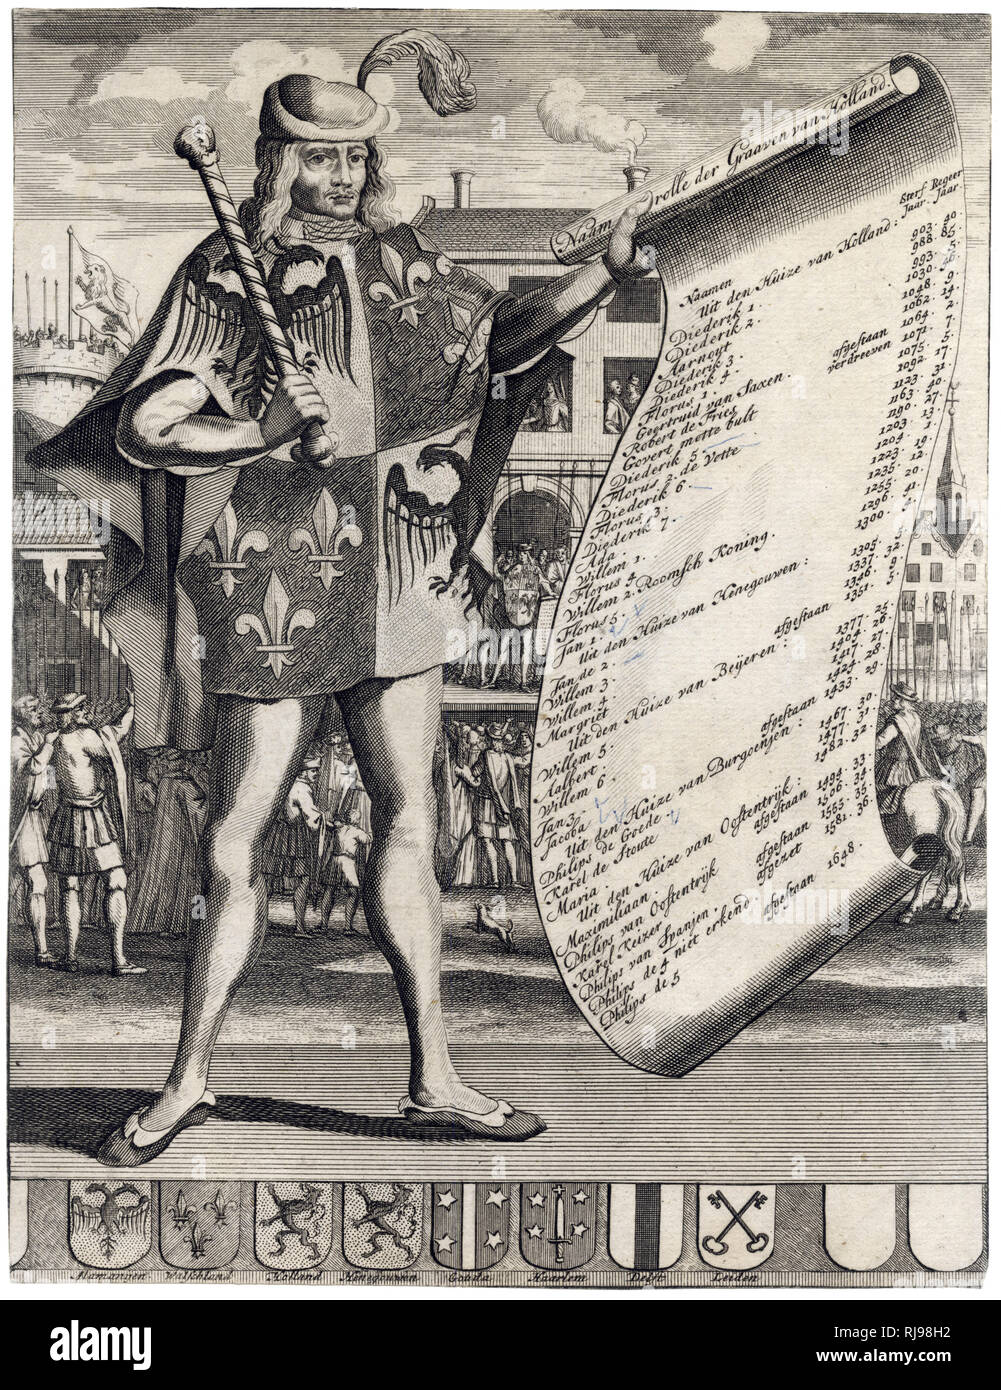 Naam Rolle der Graaven van Holland.
Naamen Sterf Jaar. Regeer Jaar
Uit den Huize van Holland:
Diederik 1. 903. 40.
Diederik 2. 988. 85.
Aarnout 993. 5.
Diederik 3. 1030.
Diederik 4. 1048. 9.
Florus 1. 1062. 14.
Geertruid van Saxen. afgestaan 1064. 2.
Robert de Fries verdreeven 1071. 7.
Govert mette bult 1075. 5.
Diederik 5. 1092. 17.
Florus 2. de Vette 1123. 31.
Diederik 6. 1163. 40.
Florus 3. 1190. 27.
Diederik 7. 1203. 13.
Ada 1204. 1.
Willem 1. 1223. 19.
Florus 4. 1235. 12.
Willem 2. Roomsch Koning. 1255. 20.
Florus 5. 1296. 41.
Jan 1. 1300.
Uit den Huize van Henegouwen:
Jan de 2. 1305. 5.
Willem 3. 1337. 32.
Willem 4. 1346. 9.
Margriet afgestaan 1351. 5.
Uit den Huize van Beijeren:
Willem 5. 1377. 25.
Aalbert. 1404. 26.
Willem 6. 1417. 27.
Jan 3. 1424. 28.
Jacoba afgestaan 1433. 29.
Uit den Huize van Burgoenjen:
Philips de Goede. 1467. 30.
Karel de Stoute 1477. 31.
Maria. 1482. 32.
Uit den Huize van Oostentrijk:
Maximiliaan. afgestaan 1494. 33.
Philips van Oostentrijk 1506. 34.
Karel Keizer. afgestaan 1555. 35.
Philips van Spanjen. afgezet 1581. 36.
Philips de 4 niet erkend.
Philips de 5 afgestaan 1648.
Alamannien Walschland Holland Henegouwen Gouda Haarlem Delft Leiden
alamy
Image ID: RJ98H2
www.alamy.com